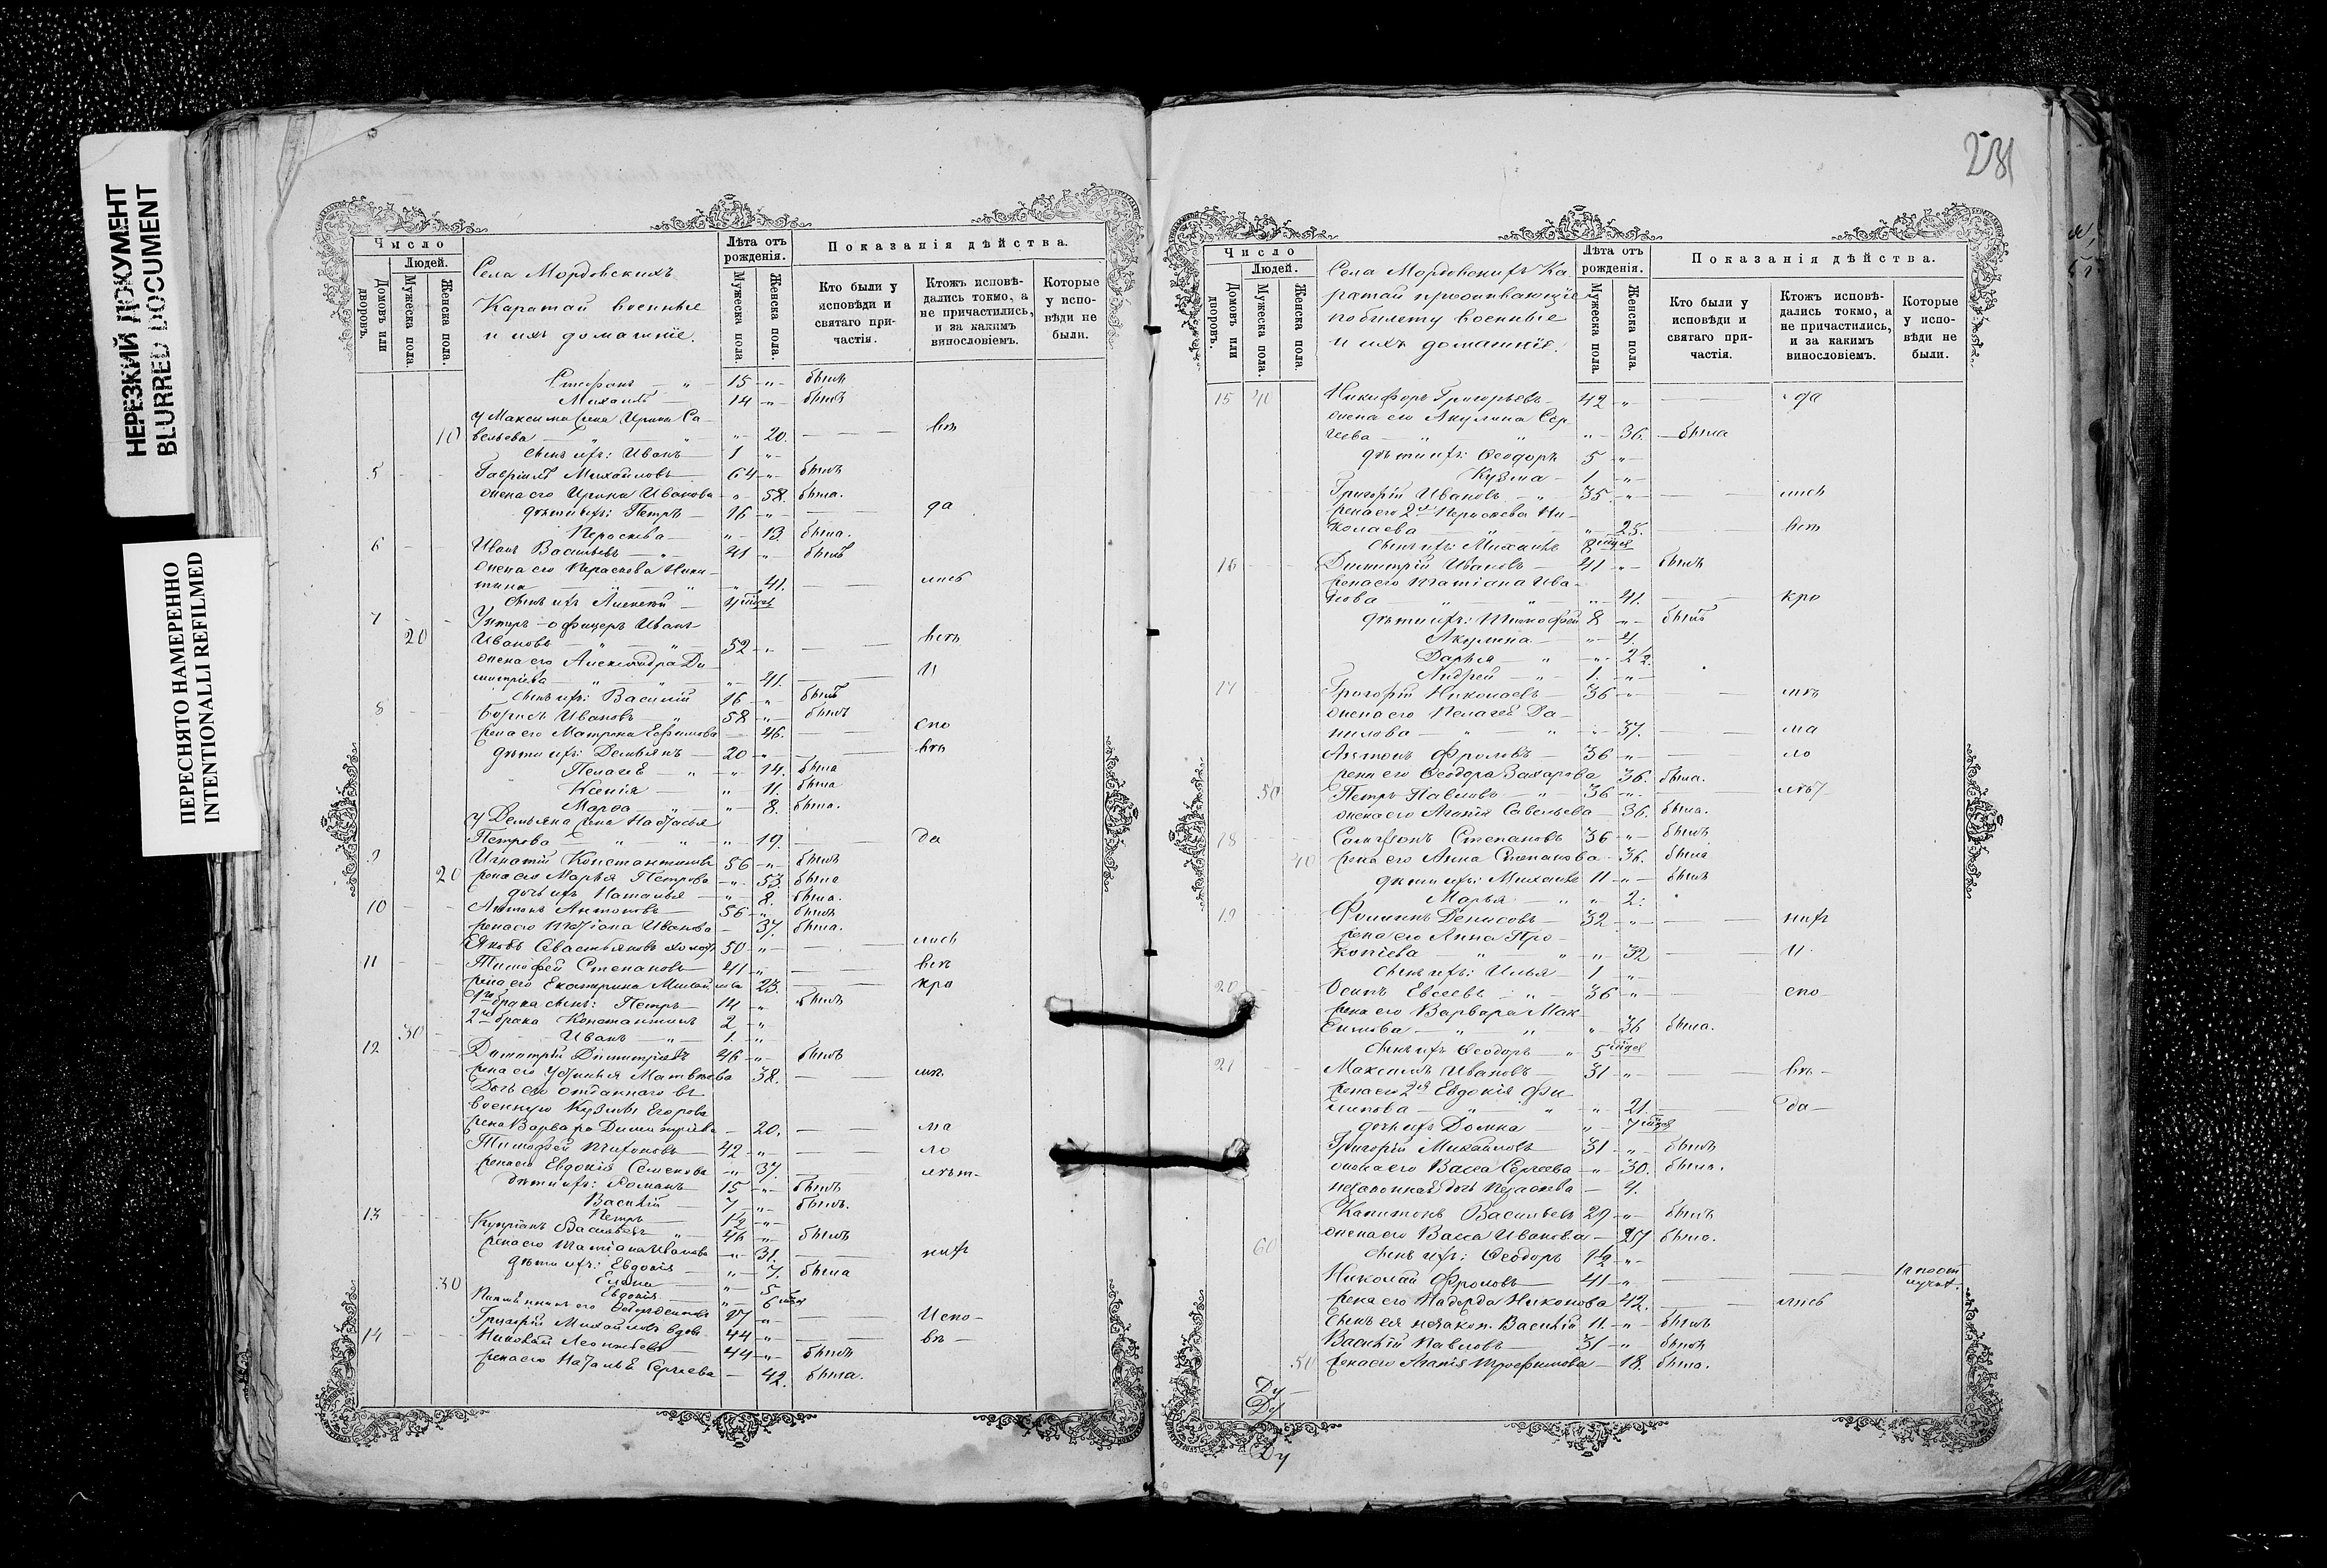 НЕРЕЗКИЙ ДОКУМЕНТ
BLURRED DOCUMENT
ПЕРЕСНЯТО НАМЕРЕННО
INTENTIONALLI REFILMED
Число
Людей.
Домовъ или дворовъ.
Мужеска пола.
Женска пола.
Села Мордовскихъ
Каратай военные
и ихъ домашніе.
Лѣта отъ рожденія.
Мужеска пола.
Женска пола.
Показанія дѣйства.
Кто были у исповѣди и святаго причастія.
Ктожъ исповѣдались токмо, а не причастились, и за какимъ винословіемъ.
Которые у исповѣди не были.
Стефанъ — „ — 15 — „ — былъ
Михаилъ — 14 — „ — былъ
у Максима жена Ирина Са-
10 вельева — „ — 20.
сынъ ихъ: Иванъ — 1 — „ —
5 Гавріилъ Михайловъ — 64 — „ — былъ
жена его Ирина Иванова — „ — 58. была.
дѣти ихъ: Петръ — 16 — „ — да
Параскева — „ — 13. была.
6 Иванъ Васильевъ — „ — 41 „ — былъ
жена его Параскева Ники-
тина — „ — 41. — лись
сынъ ихъ Алексей — 4
7 Унтеръ-офицеръ Иванъ
20 Ивановъ — „ — 52 — „
жена его Александра Ди-
митріева — „ — 41.
сынъ ихъ: Василій 16 — „ былъ
8 Борисъ Ивановъ — „ 58 — „ — былъ
жена его Матрона Ефимова — 46. — спо
дѣти ихъ: Демьянъ — 20 — „
Пелагея — „ — „ — 14. была
Ксенія — „ — 11. была
Марѳа — „ — „ — 8. была.
у Демьяна жена Наталья
Петрова — „ — „ — 19. — да
9 Игнатій Константиновъ 56 — „ — былъ
20 жена его Марья Петрова — „ — 53. была
дочь ихъ Наталья — „ 8. была.
10 Антонъ Антоновъ — 56 — „ — былъ
жена его Татіана Иванова — 37. была.
Яковъ Севастьяновъ холостъ 50 — „ — лись
11 Тимофей Степановъ — 41 „
жена его Екатерина Михайлова 23. — кро
1го брака сынъ: Петръ — 14 — „ былъ
2го брака Константинъ 2 „
30 Иванъ — „ — 1. „
12 Димитрій Димитріевъ 46 — „ — былъ
жена его Устинья Матвѣева 38.
Дочь его отданнаго въ
военную Кузьмы Егорова
жена Варвара Димитріева — 20. — ма
Тимофей Тихоновъ — 42 — „ — ло
жена его Евдокія Семенова „ — 37. — лѣт-
дѣти ихъ: Романъ — 15 — „ — былъ
Василій — 7 — „ — былъ.
Петръ — 1½ — „ —
13 Купріанъ Васильевъ — 46 — „ — былъ
жена его Татіана Иванова — „ — 31. — нихъ
дѣти ихъ: Евдокія — „ — 7. была
Елена — „ — 5
30 Евдокія — „ — 6
Григорій Михайловъ вдовъ 44 — „ — вѣ —
14 Николай Леонтьевъ — 44 — „ — былъ
жена его Наталья Сергѣева — 42. была.
231
Число
Людей.
Домовъ или дворовъ.
Мужеска пола.
Женска пола.
Села Мордовскихъ Ка
ратай проживающіе
по билету военные
и ихъ домашніе.
Лѣта отъ рожденія.
Мужеска пола.
Женска пола.
Показанія дѣйства.
Кто были у исповѣди и святаго причастія.
Ктожъ исповѣдались токмо, а не причастились, и за какимъ винословіемъ.
Которые у исповѣди не были.
15 40 Никифоръ Григорьевъ — 42 — „ — да
жена его Акулина Сер-
гѣева — „ — „ — 36. — была
дѣти ихъ: Ѳеодоръ 5 — „ —
Кузьма — 1 — „ —
Григорій Ивановъ — „ — 35 — „ — лись
жена его 2я Параскева Ни-
колаева — „ — 25.
сынъ ихъ: Михаилъ 8
16 Димитрій Ивановъ — 41 — „ — былъ
жена его Татіана Ива-
нова — „ — „ — 41. — кро
дѣти ихъ: Тимофей 8 — „ — былъ
Акулина — „ — 4.
Дарья — „ — 2½.
Андрей — „ — 1. — „ —
17 Григорій Николаевъ — 36 — „ —
жена его Пелагея Да-
нилова — „ — „ — 37. — ма
Антонъ Фроловъ — 36 — „ — ло
жена его Ѳеодора Захарова 36. была.
50 Петръ Павловъ — „ — 36 — „ —
жена его Агапія Савельева — 36. была.
18 Сампсонъ Степановъ 36 — „ — былъ
40 жена его Анна Степанова — 36. была
дѣти ихъ: Михаилъ 11 — „ — былъ
Марья — „ — 2.
19 Филиппъ Денисовъ — 32 — „ — нихъ
жена его Анна Про-
копіева — „ — „ — 32 — и
сынъ ихъ: Илья — 1 — „ —
20 Осипъ Евсеевъ — „ — 36 — „ — спо —
жена его Варвара Мак-
симова — „ — „ — 36 была.
сынъ ихъ Ѳеодоръ — „ 5
21 Максимъ Ивановъ — 31 — „ — вѣ —
жена его 2я Евдокія Фи-
липова — „ — „ — 21 — да —
дочь ихъ Домна — „ — 7
Григорій Михайловъ — 31 — „ — былъ
жена его Васса Сергѣева — „ — 30. была.
незаконная дочь Параскева — 4.
Капитонъ Васильевъ 29 — „ — былъ
60 жена его Васса Иванова — 27 была.
сынъ ихъ: Ѳеодоръ 1½ — „ —
Николай Фроловъ — 41 — „
жена его Надежда Никонова 42. — лись
сынъ ея незакон. Василій 11. — „ — былъ
Василій Павловъ — 31 — „ — былъ
50 жена его Агапія Трофимова — 18. была.
Ду
Ду
Ду